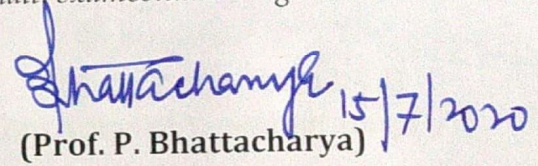 Bhattacharya 15/7/2020
(Prof. P. Bhattacharya)